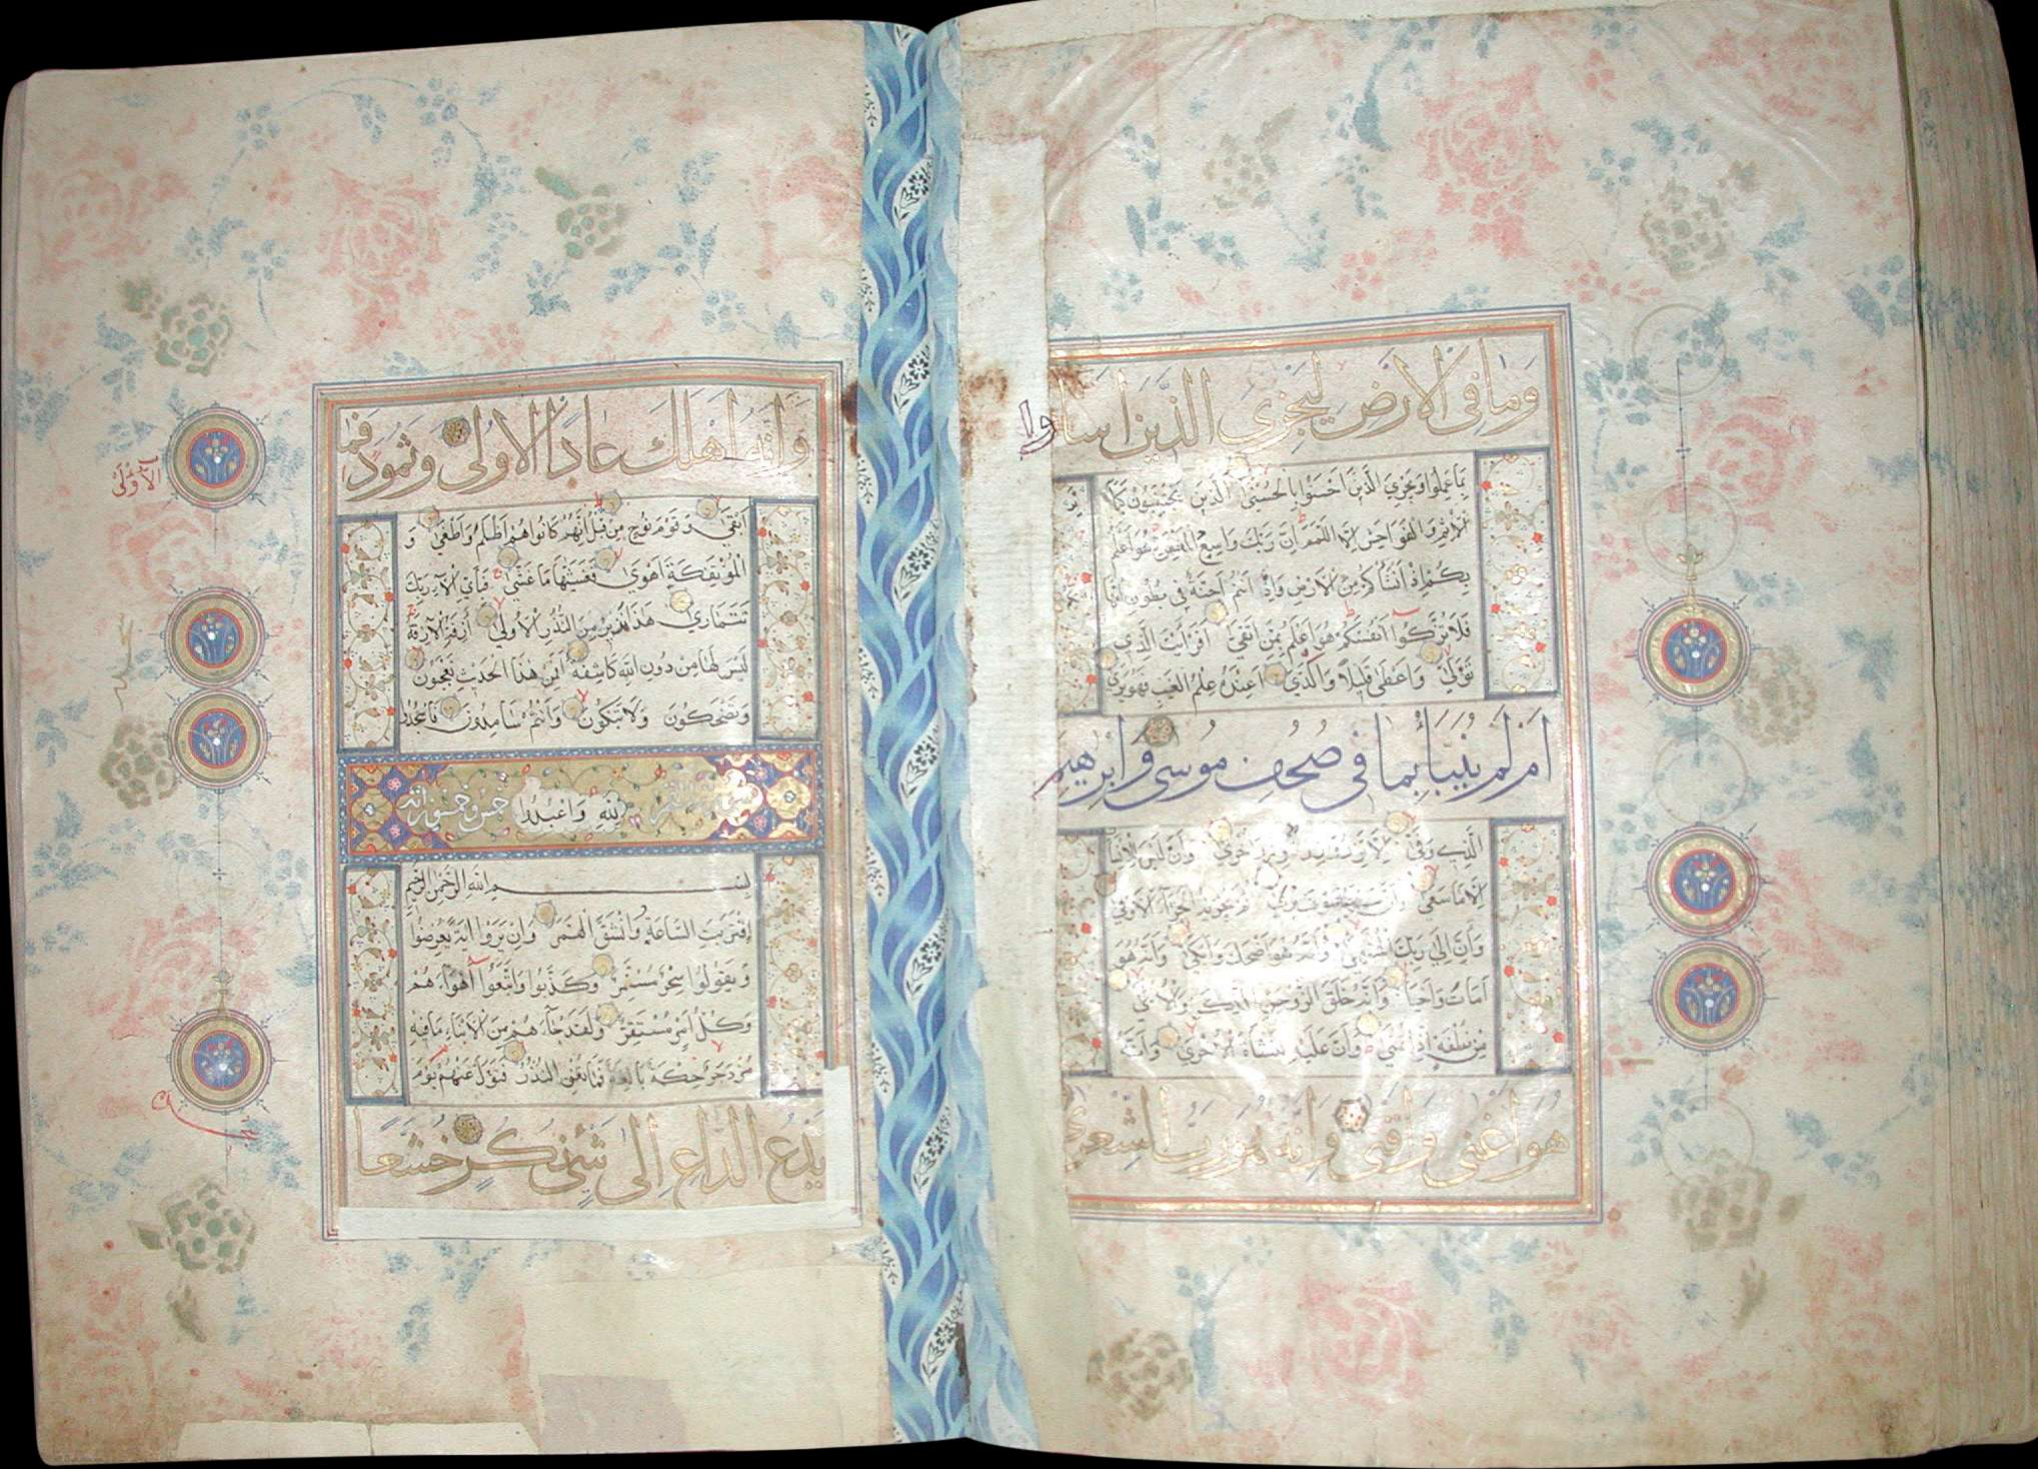 وَمَا فِي الْاَرْضِ لِيَجْزِيَ الَّذِينَ اَسَاؤا
بِمَا عَمِلُوا وَيَجْزِيَ الَّذِينَ اَحْسَنُوا بِالْحُسْنَى الَّذِينَ يَجْتَنِبُونَ كَبَائِرَ
الْاِثْمِ وَالْفَوَاحِشَ اِلَّا اللَّمَمَ اِنَّ رَبَّكَ وَاسِعُ الْمَغْفِرَةِ هُوَ اَعْلَمُ
بِكُمْ اِذْ اَنْشَأَكُمْ مِنَ الْاَرْضِ وَاِذْ اَنْتُمْ اَجِنَّةٌ فِي بُطُونِ اُمَّهَاتِكُمْ
فَلَا تُزَكُّوا اَنْفُسَكُمْ هُوَ اَعْلَمُ بِمَنِ اتَّقَى اَفَرَاَيْتَ الَّذِي
تَوَلَّى وَاَعْطَى قَلِيلًا وَاَكْدَى اَعِنْدَهُ عِلْمُ الْغَيْبِ فَهُوَ يَرَى
اَمْ لَمْ يُنَبَّأْ بِمَا فِي صُحُفِ مُوسَى وَاِبْرَهِيمَ
الَّذِي وَفَّى اَلَّا تَزِرُ وَازِرَةٌ وِزْرَ اُخْرَى وَاَنْ لَيْسَ لِلْاِنْسَانِ
اِلَّا مَا سَعَى وَاَنَّ سَعْيَهُ سَوْفَ يُرَى ثُمَّ يُجْزَيهُ الْجَزَاءَ الْاَوْفَى
وَاَنَّ اِلَى رَبِّكَ الْمُنْتَهَى وَاَنَّهُ هُوَ اَضْحَكَ وَاَبْكَى وَاَنَّهُ هُوَ
اَمَاتَ وَاَحْيَا وَاَنَّهُ خَلَقَ الزَّوْجَيْنِ الذَّكَرَ وَالْاُنْثَى
مِنْ نُطْفَةٍ اِذَا تُمْنَى وَاَنَّ عَلَيْهِ النَّشْأَةَ الْاُخْرَى وَاَنَّهُ
هُوَ اَغْنَى وَاَقْنَى وَاَنَّهُ هُوَ رَبُّ الشِّعْرَى
وَاَنَّهُ اَهْلَكَ عَادًا الْاُولَى وَثَمُودَ فَمَا
اَبْقَى وَقَوْمَ نُوحٍ مِنْ قَبْلُ اِنَّهُمْ كَانُوا هُمْ اَظْلَمَ وَاَطْغَى وَ
الْمُؤْتَفِكَةَ اَهْوَى فَغَشَّيهَا مَا غَشَّى فَبِاَيِّ اٰلَاءِ رَبِّكَ
تَتَمَارَى هَذَا نَذِيرٌ مِنَ النُّذُرِ الْاُولَى اَزِفَتِ الْاٰزِفَةُ
لَيْسَ لَهَا مِنْ دُونِ اللهِ كَاشِفَةٌ اَفَمِنْ هَذَا الْحَدِيثِ تَعْجَبُونَ
وَتَضْحَكُونَ وَلَا تَبْكُونَ وَاَنْتُمْ سَامِدُونَ فَاسْجُدُوا
لِلّٰهِ وَاعْبُدُوا خمس وخمسون اية
بِسْمِ اللهِ الرَّحْمَنِ الرَّحِيمِ
اِقْتَرَبَتِ السَّاعَةُ وَانْشَقَّ الْقَمَرُ وَاِنْ يَرَوْا اٰيَةً يُعْرِضُوا
وَيَقُولُوا سِحْرٌ مُسْتَمِرٌّ وَكَذَّبُوا وَاتَّبَعُوا اَهْوَاءَهُمْ
وَكُلُّ اَمْرٍ مُسْتَقِرٌّ وَلَقَدْ جَاءَهُمْ مِنَ الْاَنْبَاءِ مَا فِيهِ
مُزْدَجَرٌ حِكْمَةٌ بَالِغَةٌ فَمَا تُغْنِ النُّذُرُ فَتَوَلَّ عَنْهُمْ يَوْمَ
يَدْعُ الدَّاعِ اِلَى شَيْءٍ نُكُرٍ خُشَّعًا
الْاُولَى